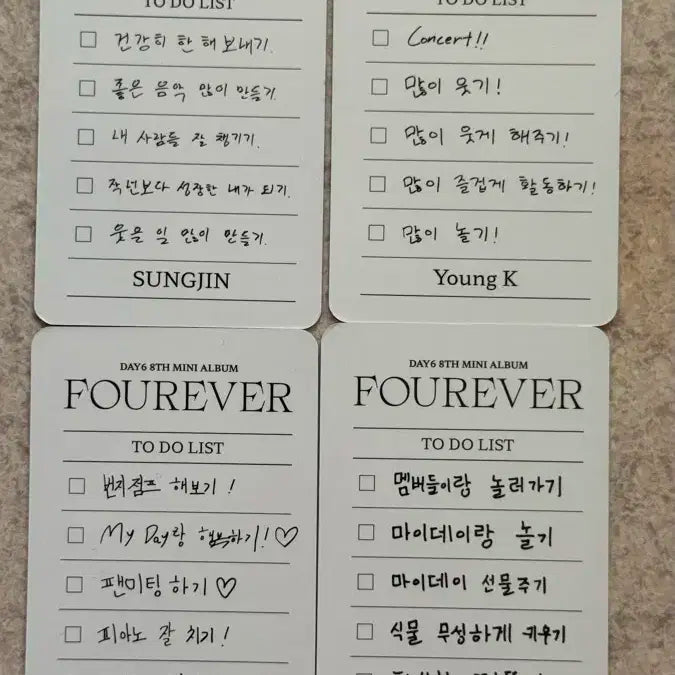 TO DO LIST
건강히 한 해 보내기.
좋은 음악 많이 만들기.
내 사람들 잘 챙기기.
작년보다 성장한 내가 되기.
웃을 일 많이 만들기.
SUNGJIN
TO DO LIST
Concert!!
많이 웃기!
많이 웃게 해주기!
많이 즐겁게 활동하기!
많이 놀기!
Young K
DAY6 8TH MINI ALBUM
FOUREVER
TO DO LIST
번지점프 해보기!
My Day랑 행복하기!♡
팬미팅 하기♡
피아노 잘 치기!
DAY6 8TH MINI ALBUM
FOUREVER
TO DO LIST
멤버들이랑 놀러가기
마이데이랑 놀기
마이데이 선물주기
식물 무성하게 키우기